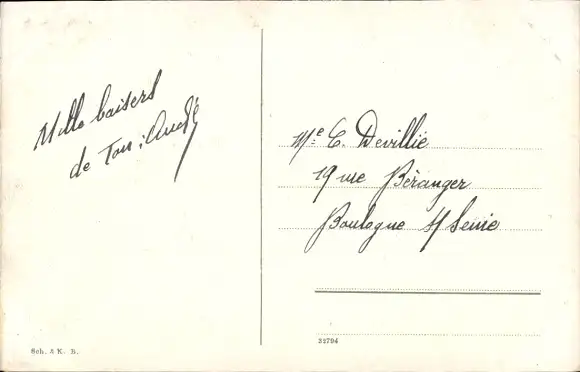 Mille baisers
de Ton André
Me C. Devillié
19 rue Béranger
Boulogne s/ Seine
Sch. & K. B.
32794